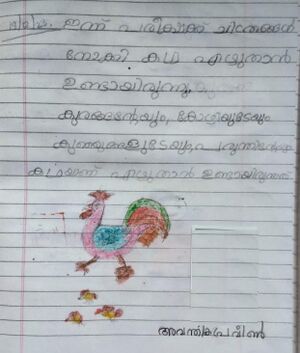 ഇന്ന് പരീക്ഷക്ക് ചിത്രങ്ങൾ
നോക്കി കഥ എഴുതാൻ
ഉണ്ടായിരുന്നു.
കുറുക്കന്റേയും, കോഴിയുടേയും
കുഞ്ഞുങ്ങളുടേയും, പരുന്തിന്റേയും
കഥയാണ് എഴുതാൻ ഉണ്ടായിരുന്നത്
അവന്തിക പ്രവീൺ